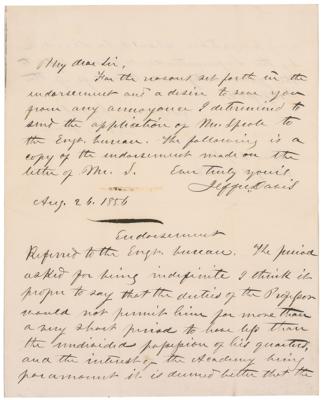 My dear Sir,
For the reasons set forth in the
endorsement and a desire to save you
from any annoyance I determined to
send the application of Mr. to
the Engr. bureau. The following is a
copy of the endorsement made on the
letter of Mr. S. Ever truly yours
Jeffn. Davis
Aug. 26. 1856
Endorsement
Referred to the Engr. bureau. The period
asked for being indefinite I think it
proper to say that the duties of the Professor
would not permit him for more than
a very short period to have less than
the undivided possession of his quarters,
and the interest of the Academy being
paramount it is deemed better that the